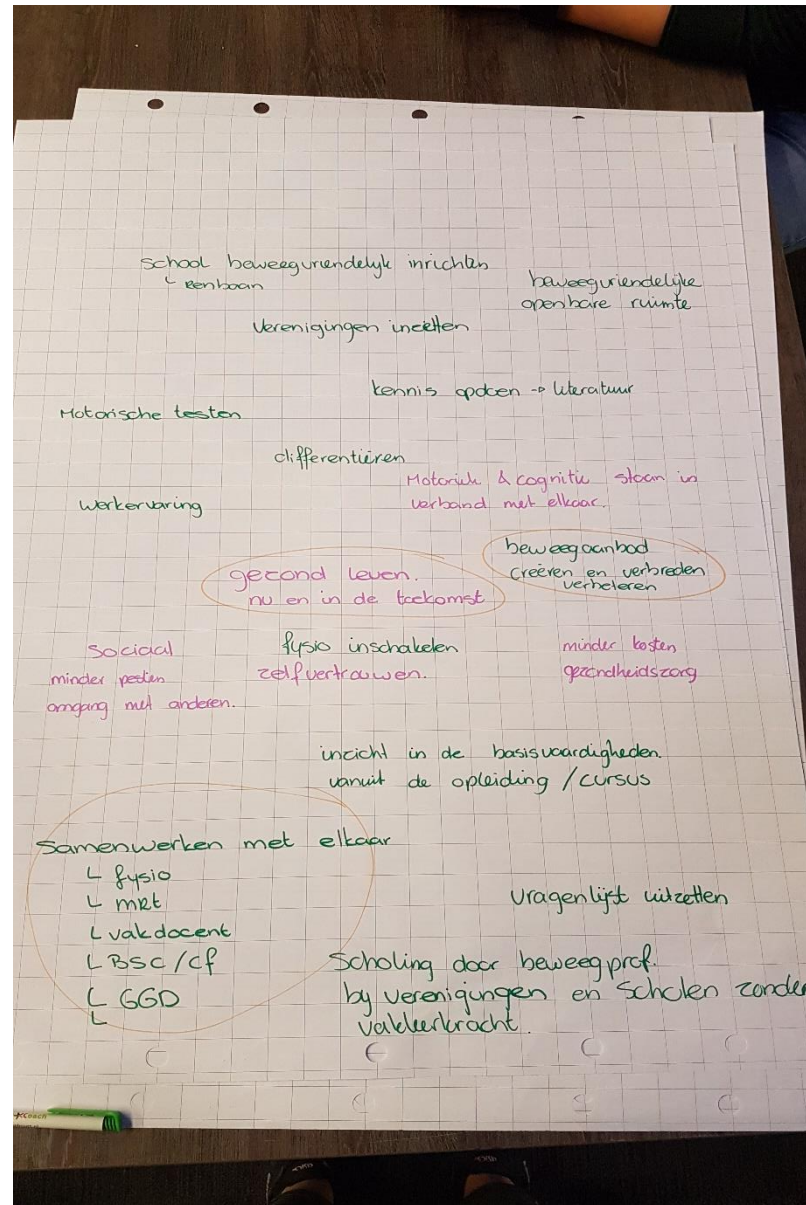 School beweegvriendelijk inrichten
└ renbaan
beweegvriendelijke
openbare ruimte
Verenigingen inzetten
kennis opdoen -> literatuur
Motorische testen
differentiëren
Motoriek & cognitie staan in
verband met elkaar.
Werkervaring
beweegaanbod
creëren en verbreden
verbeteren
gezond leven.
nu en in de toekomst
Sociaal
minder pesten
omgang met anderen.
fysio inschakelen
zelfvertrouwen.
minder kosten
gezondheidszorg
inzicht in de basisvaardigheden.
vanuit de opleiding / cursus
Samenwerken met elkaar
└ fysio
└ mrt
└ vakdocent
└ BSC / cf
└ GGD
└
Vragenlijst uitzetten
Scholing door beweegprof.
bij verenigingen en scholen zonder
vakleerkracht.